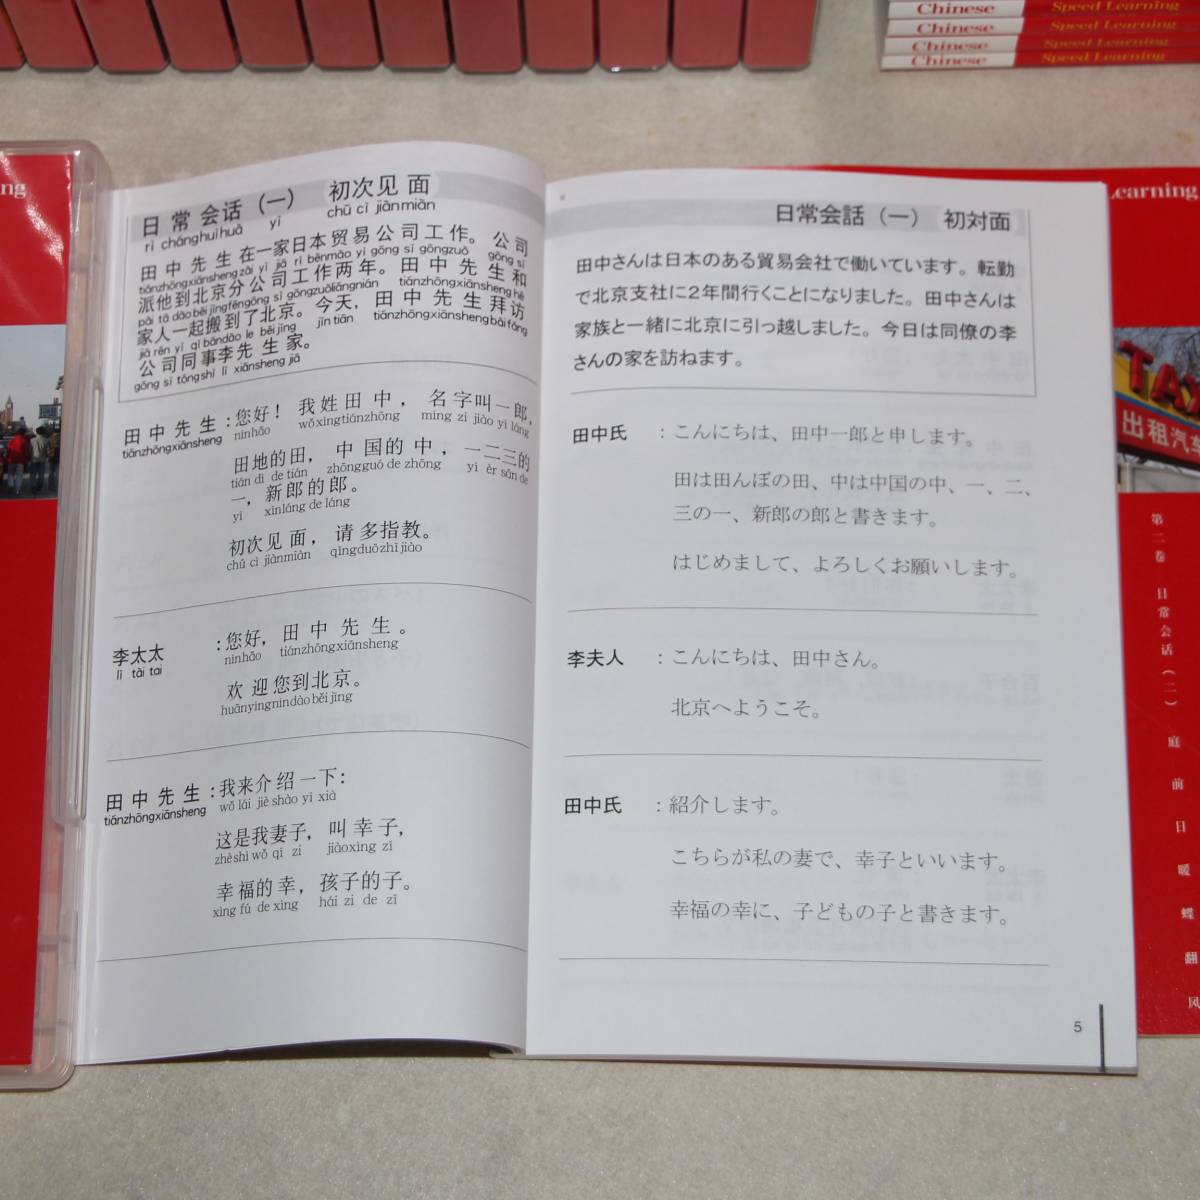 Chinese Speed Learning
Chinese Speed Learning
Chinese Speed Learning
Chinese Speed Learning
日常会话（一） 初次见面
rì cháng huì huà yī chū cì jiàn miàn
田中先生在一家日本贸易公司工作。公司
tiánzhōngxiānsheng zài yì jiā rì běn mào yì gōng sī gōngzuò gōng sī
派他到北京分公司工作两年。田中先生和
pài tā dào běi jīng fēn gōng sī gōngzuòliǎngnián tiánzhōngxiānsheng hé
家人一起搬到了北京。今天，田中先生拜访
jiā rén yì qǐ bāndào le běi jīng jīn tiān tiánzhōngxiānsheng bài fǎng
公司同事李先生家。
gōng sī tóngshì lǐ xiānsheng jiā
田中先生：您好！我姓田中，名字叫一郎，
tiánzhōngxiānsheng nínhǎo wǒxìngtiánzhōng míng zi jiào yī láng
田地的田，中国的中，一二三的
tián dì de tián zhōngguó de zhōng yī èr sān de
一，新郎的郎。
yī xīnláng de láng
初次见面，请多指教。
chū cì jiànmiàn qǐngduōzhǐjiào
李太太：您好，田中先生。
lǐ tài tai nínhǎo tiánzhōngxiānsheng
欢迎您到北京。
huānyíngníndàoběi jīng
田中先生：我来介绍一下：
tiánzhōngxiānsheng wǒ lái jiè shào yí xià
这是我妻子，叫幸子，
zhèshì wǒ qī zi jiàoxìng zǐ
幸福的幸，孩子的子。
xìng fú de xìng hái zi de zǐ
日常会話（一） 初対面
田中さんは日本のある貿易会社で働いています。転勤
で北京支社に2年間行くことになりました。田中さんは
家族と一緒に北京に引っ越しました。今日は同僚の李
さんの家を訪ねます。
田中氏：こんにちは、田中一郎と申します。
田は田んぼの田、中は中国の中、一、二、
三の一、新郎の郎と書きます。
はじめまして、よろしくお願いします。
李夫人：こんにちは、田中さん。
北京へようこそ。
田中氏：紹介します。
こちらが私の妻で、幸子といいます。
幸福の幸に、子どもの子と書きます。
5
ng
Learning
TAX
出租汽车
第二卷 日常会话（二） 庭前日暖蝶翻风